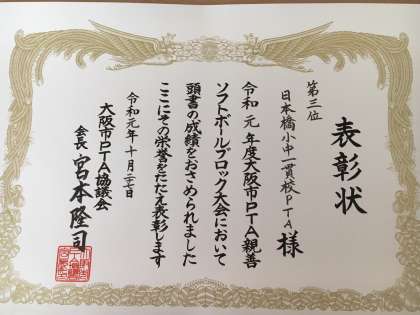 表彰状
第三位
日本橋小中一貫校PTA様
令和元年度大阪市PTA親善
ソフトボールブロック大会において
頭書の成績をおさめられました
ここにその栄誉をたたえ表彰します
令和元年十月二十七日
大阪市PTA協議会
会長 宮本隆司